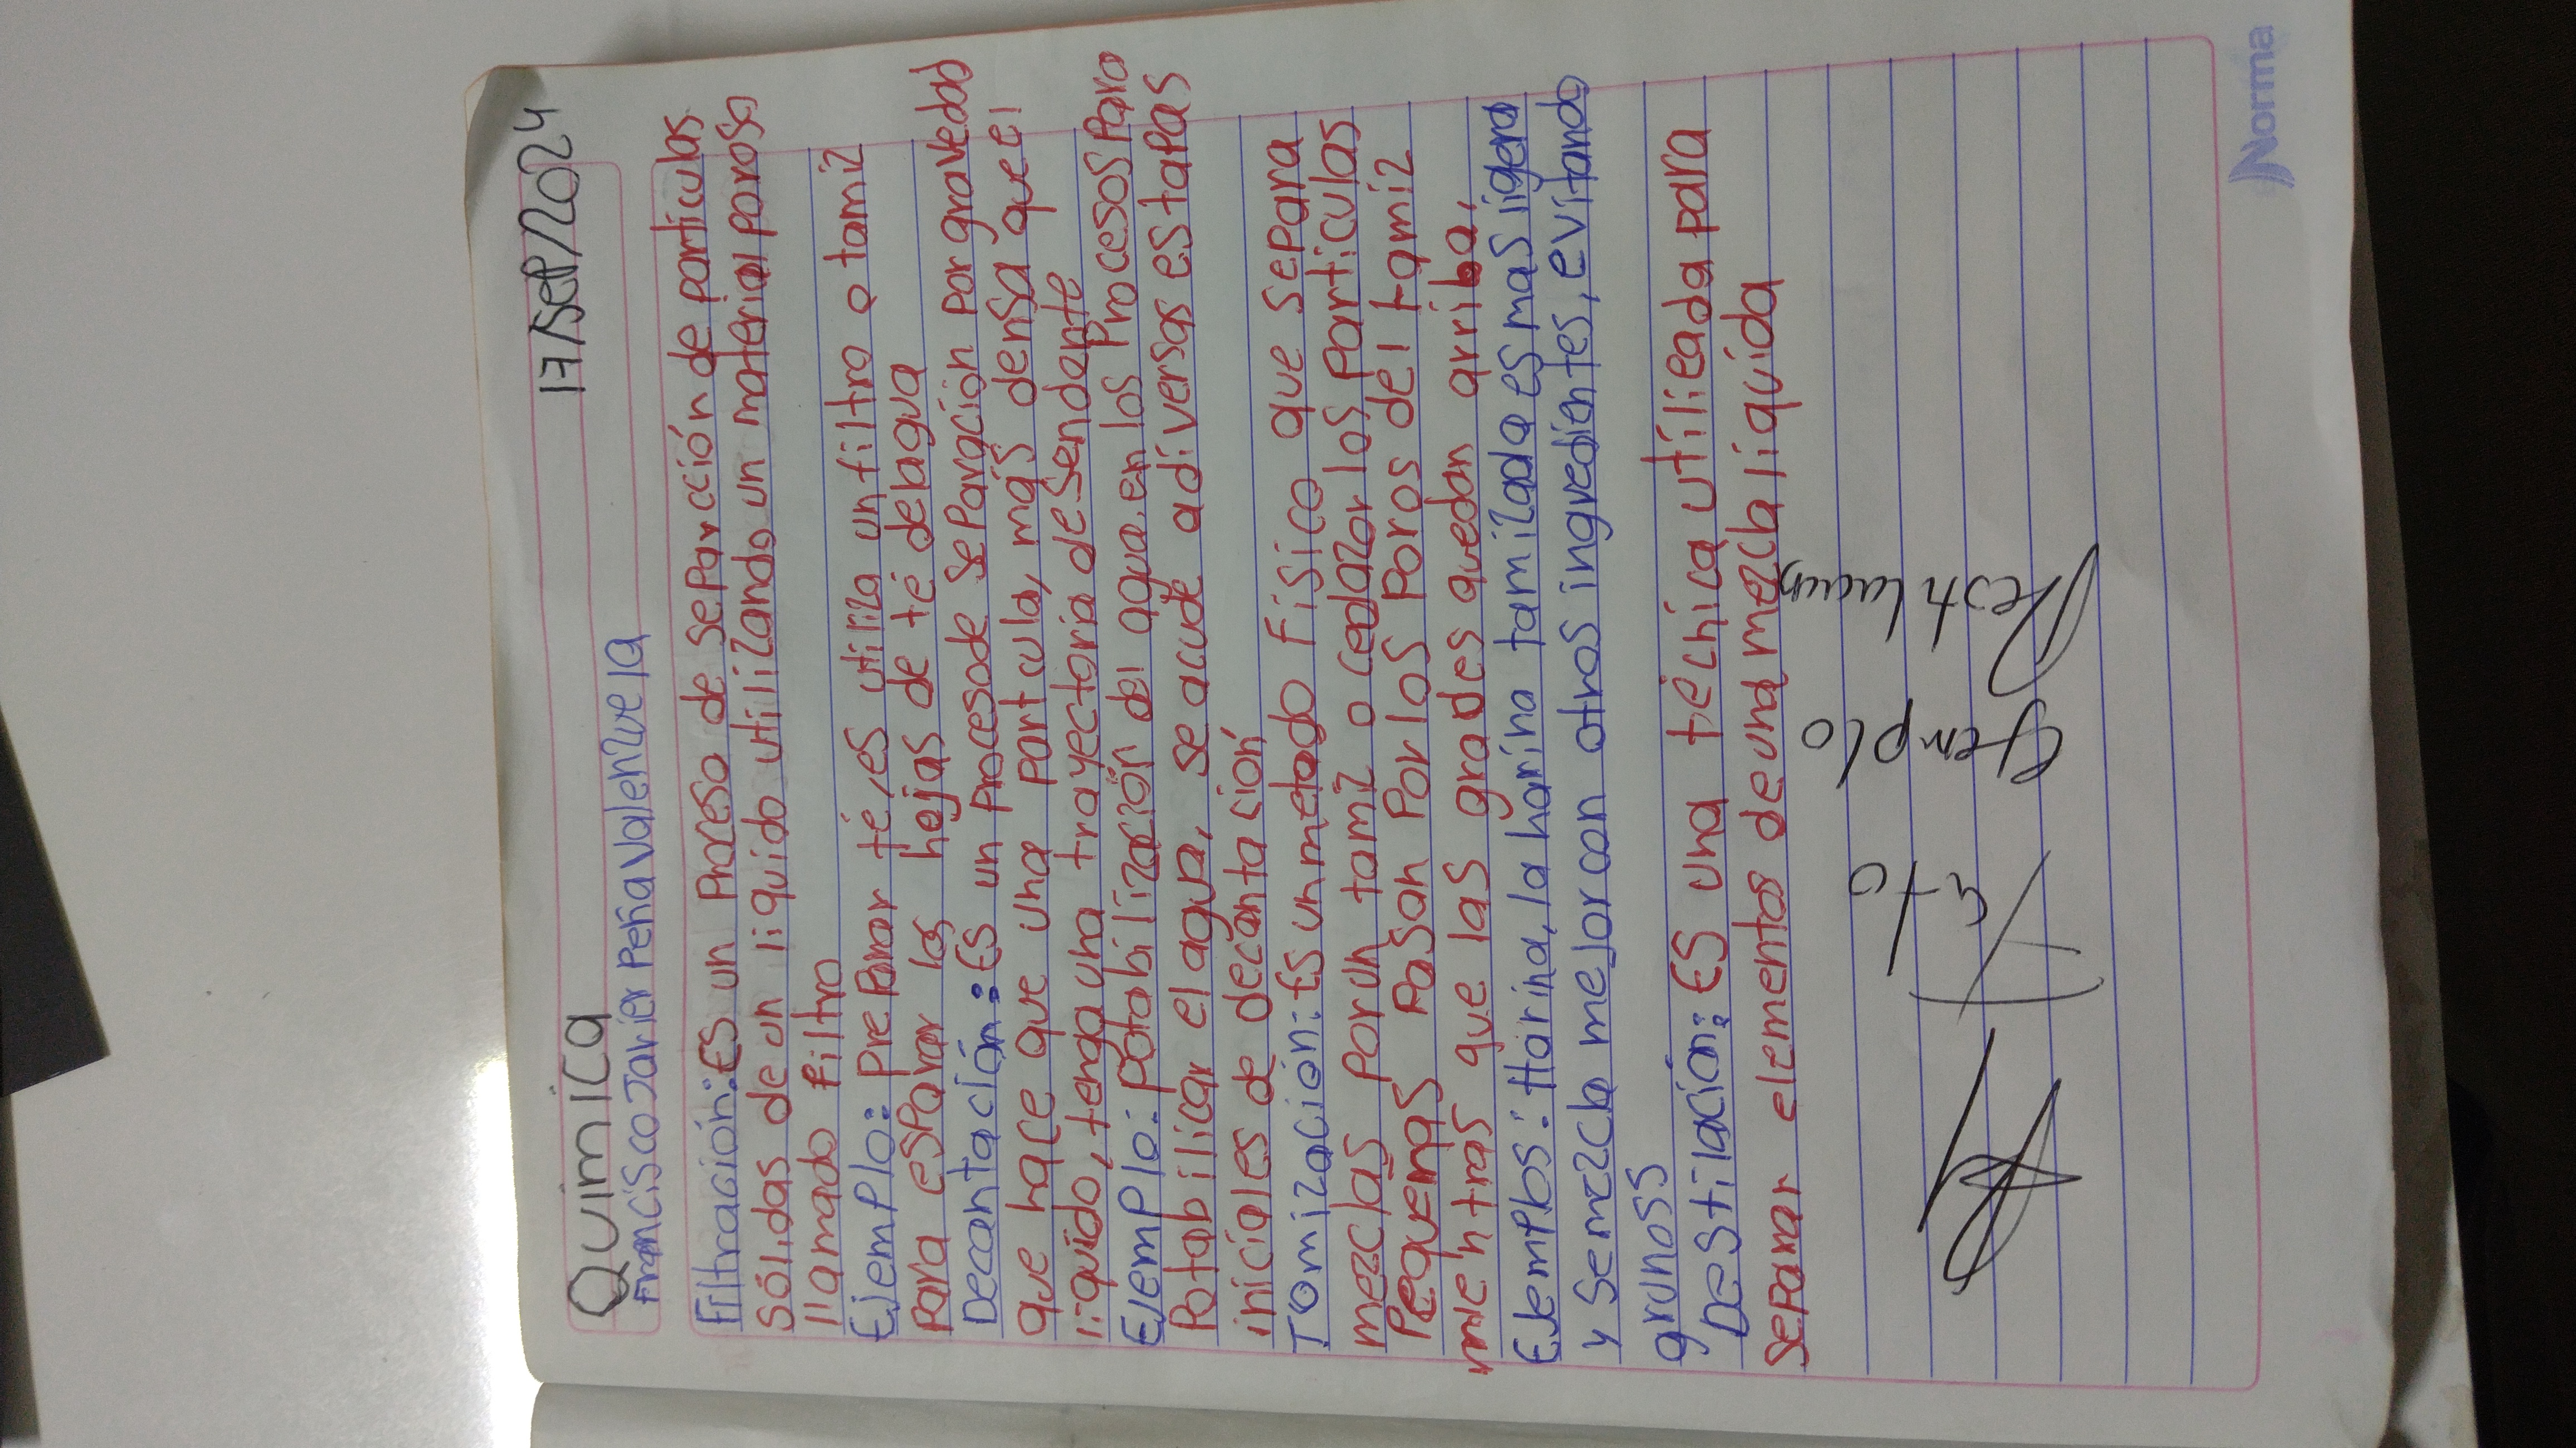 Quimica
17/sep/2024
Francisco Javier Peña Valenzuela
Filtración: Es un Proceso de separcción de partículas
sólidas de un liquido utilizando un material poroso
llamado filtro
Ejemplo: preparar té, es utiliza un filtro o tamiz
para esparar las hojas de té delagua
Decantación: Es un procesode separación por gravedad
que hace que una partcula, más densa que el
liquido, tenga una trayectoria desendente
Ejemplo: potabilización del agua en los procesos para
potabilicar el agua, se acude a diversas estapas
iniciales de decantación
Tomización: Es un metado físico que separa
mezclas por un tamiz o cedazor los particulas
pequeñas pasan por los poros del tamiz
mientras que las grades quedan arriba,
Ejemplos: Harina, la harina tamizada es mas ligera
y semezcla mejor con otros ingredientes, evitando
grunoss
Destilación: Es una téchica utilieada para
separar elementos de una mezcla liquida
Falta
Ejemplo
Destilacion
Norma